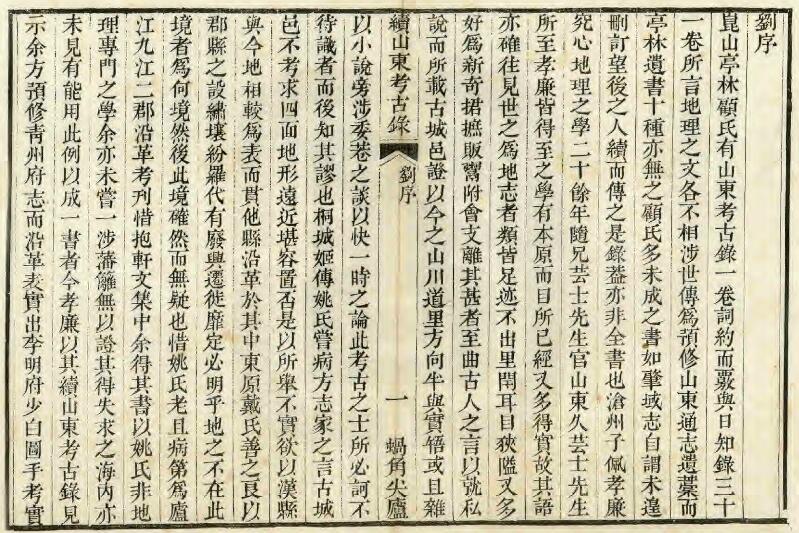 劉序
崑山亭林顧氏有山東考古錄一卷詞約而覈與日知錄三十
一卷所言地理之文各不相涉世傳爲預修山東通志遺藁而
亭林遺書十種亦無之顧氏多未成之書如肇域志自謂未遑
刪訂望後之人續而傳之是錄葢亦非全書也滄州子佩孝廉
究心地理之學二十餘年隨兄芸士先生官山東久芸士先生
所至孝廉皆得至之學有本原而目所已經又多得實故其語
亦確往見世之爲地志者類皆足迹不出里閈耳目狹隘又多
好爲新奇捃摭販鬻附會支離其甚者至曲古人之言以就私
說而所載古城邑證以今之山川道里方向半與實牾或且雜
續山東考古錄
劉序
一
蝸角尖廬
以小說旁涉委巷之談以快一時之論此考古之士所必訶不
待識者而後知其謬也桐城姬傳姚氏嘗病方志家之言古城
邑不考求四面地形遠近堪容置否是以所舉不實欲以漢縣
與今地相較爲表而貫他縣沿革於其中東原戴氏善之良以
郡縣之設繡壤紛羅代有廢興遷徙靡定必明乎地之不在此
境者爲何境然後此境確然而無疑也惜姚氏老且病第爲廬
江九江二郡沿革考刊惜抱軒文集中余得其書以姚氏非地
理專門之學余亦未嘗一涉藩籬無以證其得失求之海内亦
未見有能用此例以成一書者今孝廉以其續山東考古錄見
示余方預修青州府志而沿革表實出李明府少白圖手考實